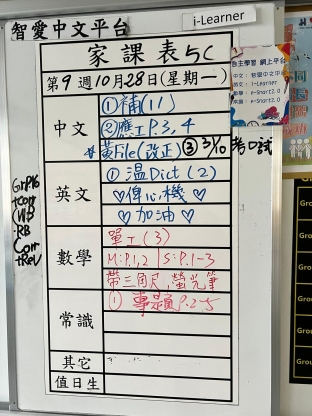 智愛中文平台
i-Learner
家課表5C
第9週10月28日(星期一)
自主學習 網上平台
中文
①補(11)
②應工P.3,4
*黃File(改正) ③ 31/10 考口試
英文
①温Dict(2)
♡俾心機♡
♡加油♡
GnP16
+Corr
WB
RB
Corr
+Rev
數學
單工(3)
M:P.1,2 S:P.1-3
帶三角尺,螢光筆
常識
① 專題P.2-5
其它
值日生
Gro
Grou
Grou
Grou
Grou